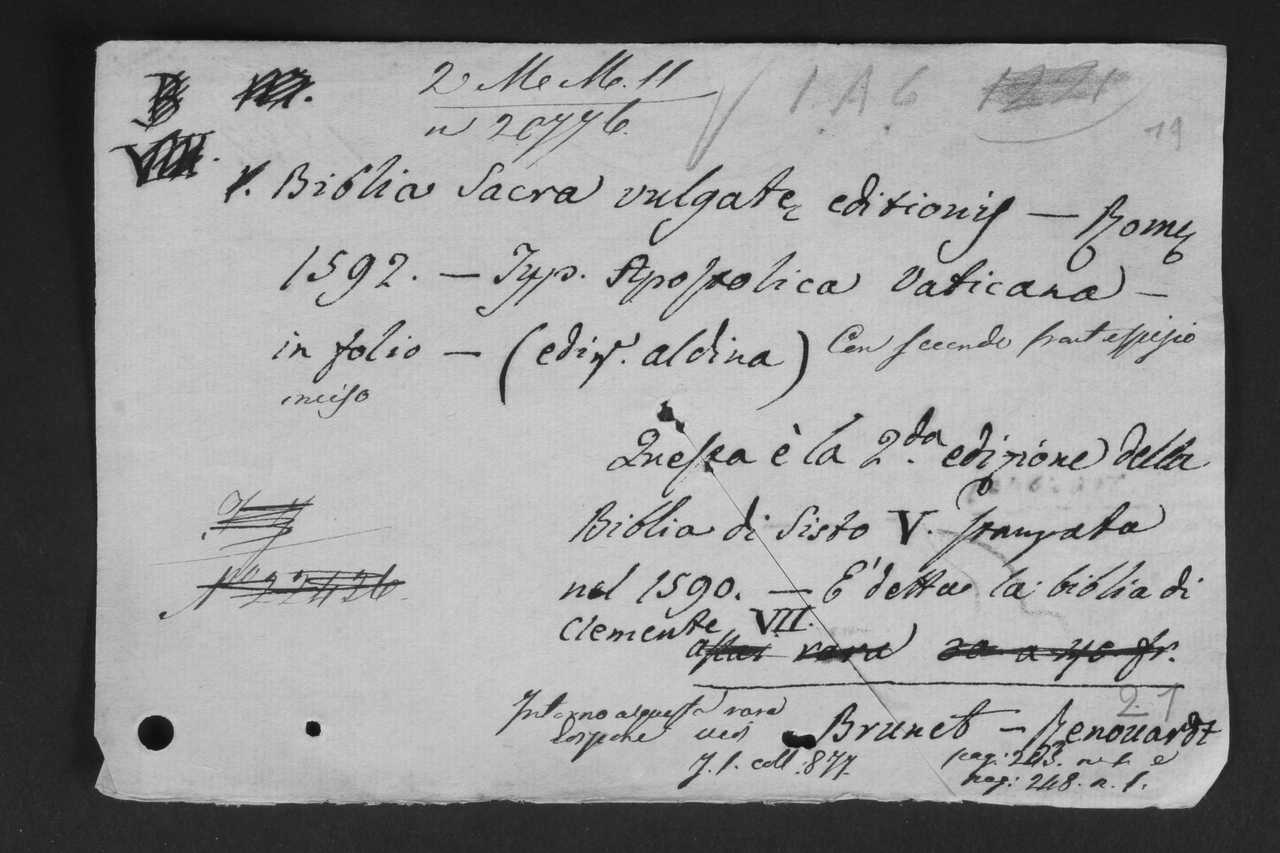 2 M. M. 11
n 20776.
1. A 6
19
VIII.
1. Biblia Sacra vulgatę editionis — Romę
1592. — Typ. Apostolica Vaticana —
in folio — (ediz. aldina) Con secondo frontespizio
inciso
Questa è la 2.da edizione della
Biblia di Sisto V. stampata
nel 1590. — E' detta la biblia di
Clemente VII.
assai rara 30 a 40 fr.
N° 22426.
Intorno a questa rara
vedi
T. 1. coll. 877.
21
Brunet — Renouardt
pag: 243. n. 1. e
pag: 248. n. 1.